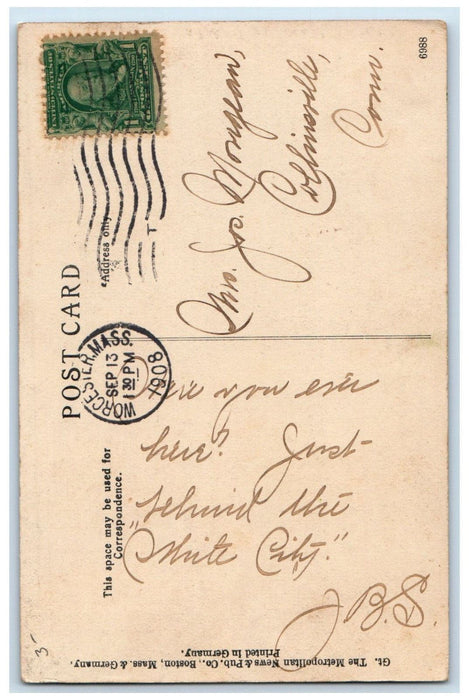 6988
POST CARD
"Address only
Mrs. Jos. Mongeau,
Collinsville,
Conn.
WORCESTER, MASS.
SEP 13
1 30 PM
1908
This space may be used for
Correspondence.
Were you ever
here? Just
behind the
"White City."
J.B.S.
Gt. The Metropolitan News & Pub. Co., Boston, Mass. & Germany.
Printed in Germany.
3-